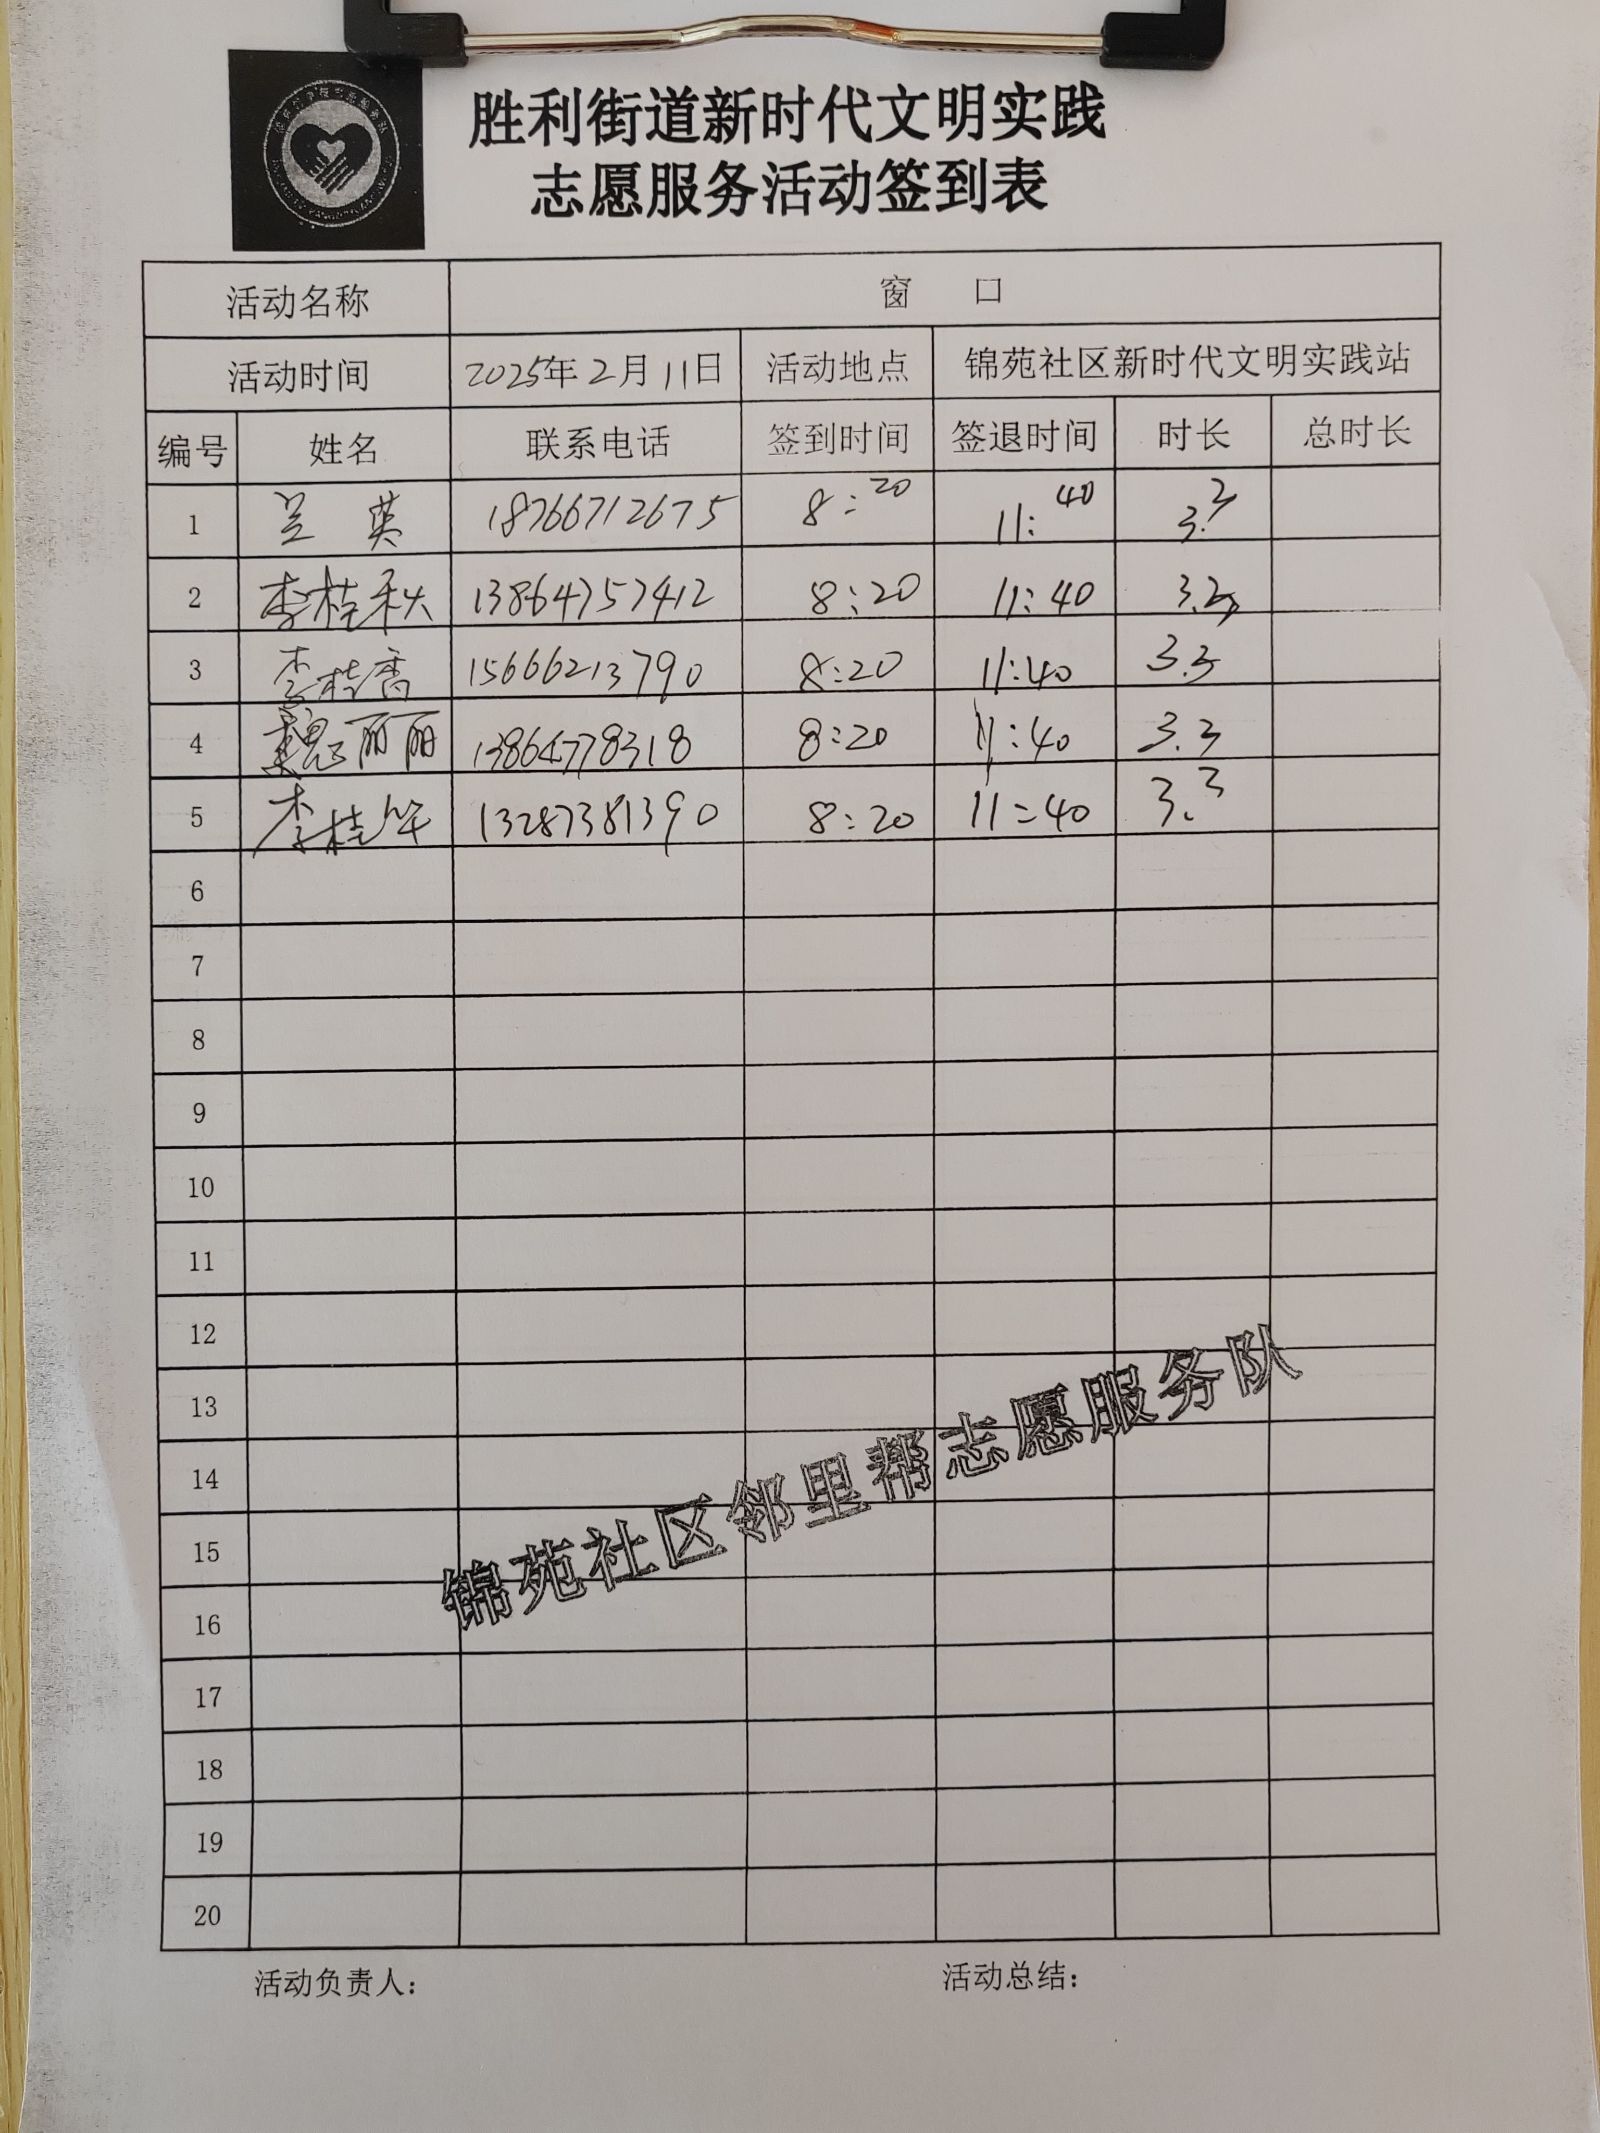 胜利街道新时代文明实践
志愿服务活动签到表
活动名称 窗 口
活动时间 2025年2月11日 活动地点 锦苑社区新时代文明实践站
编号 姓名 联系电话 签到时间 签退时间 时长 总时长
1 兰英 18766712675 8:20 11:40 3.3
2 李桂秋 13864757412 8:20 11:40 3.3
3 李桂香 15666213790 8:20 11:40 3.3
4 魏丽丽 13864778318 8:20 11:40 3.3
5 李桂华 13287381390 8:20 11:40 3.3
6
7
8
9
10
11
12
13
14
15
16
17
18
19
20
锦苑社区邻里帮志愿服务队
活动负责人： 活动总结：